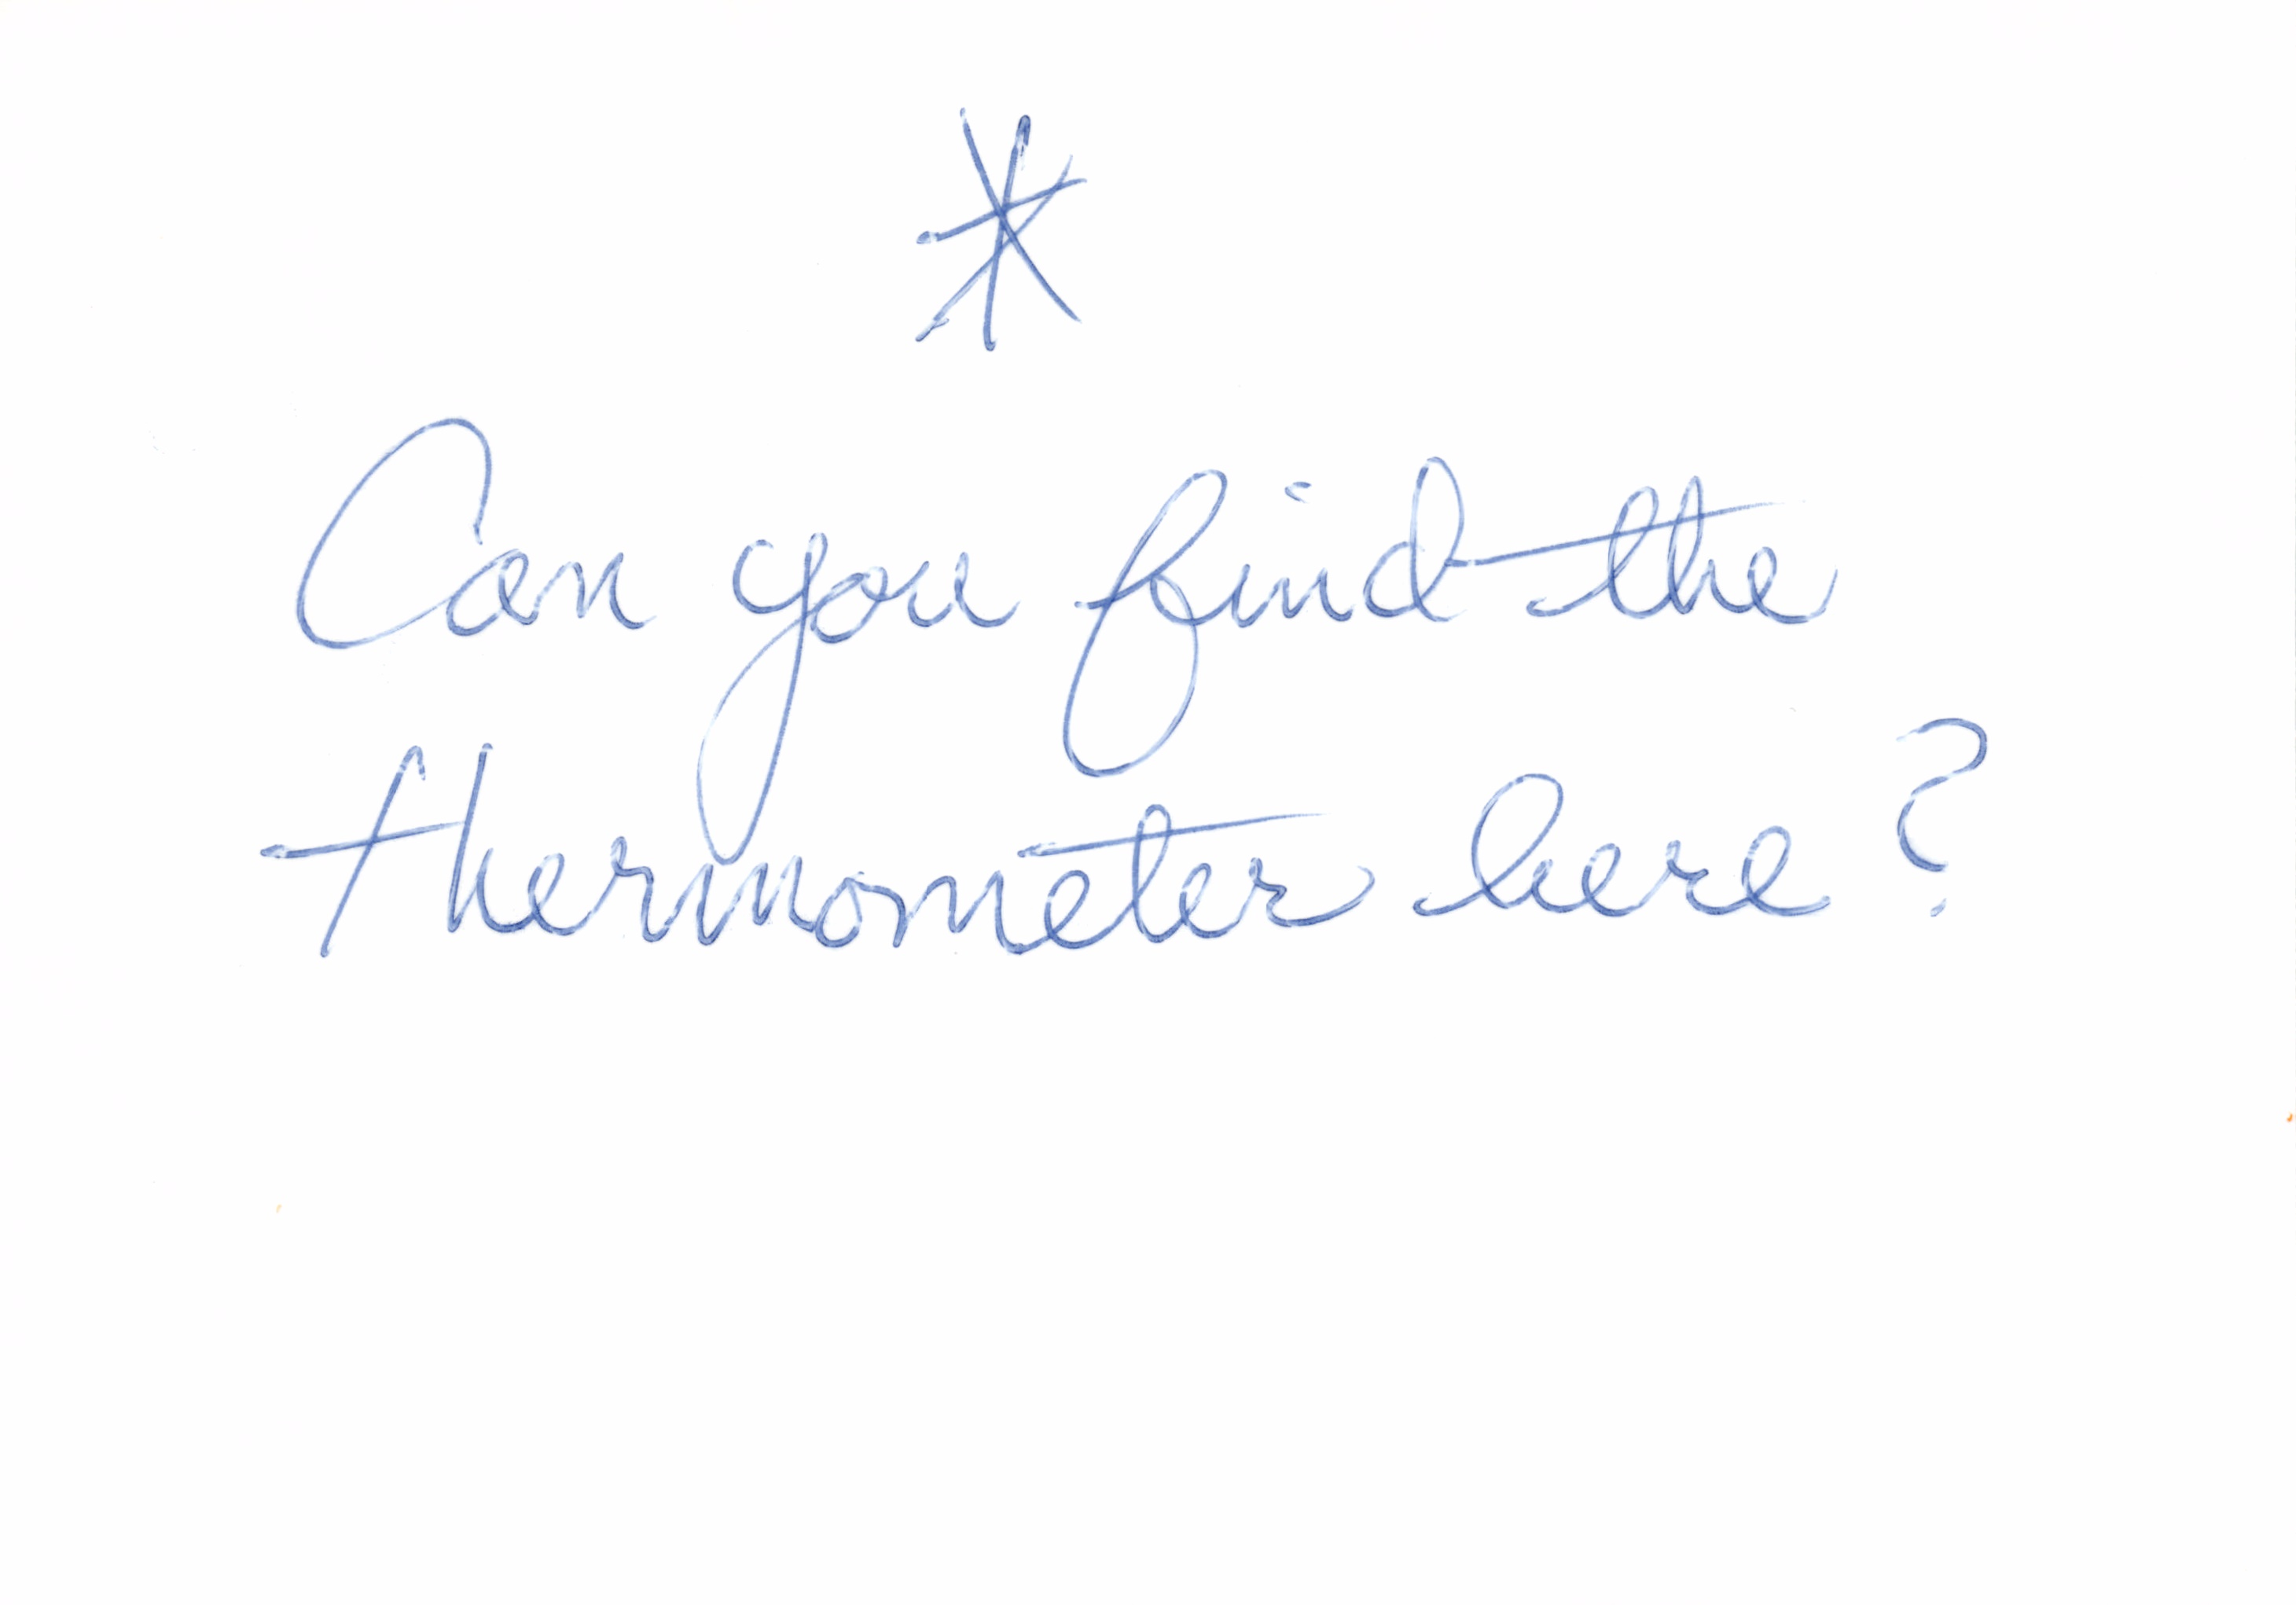 *
Can you find the
thermometer here?